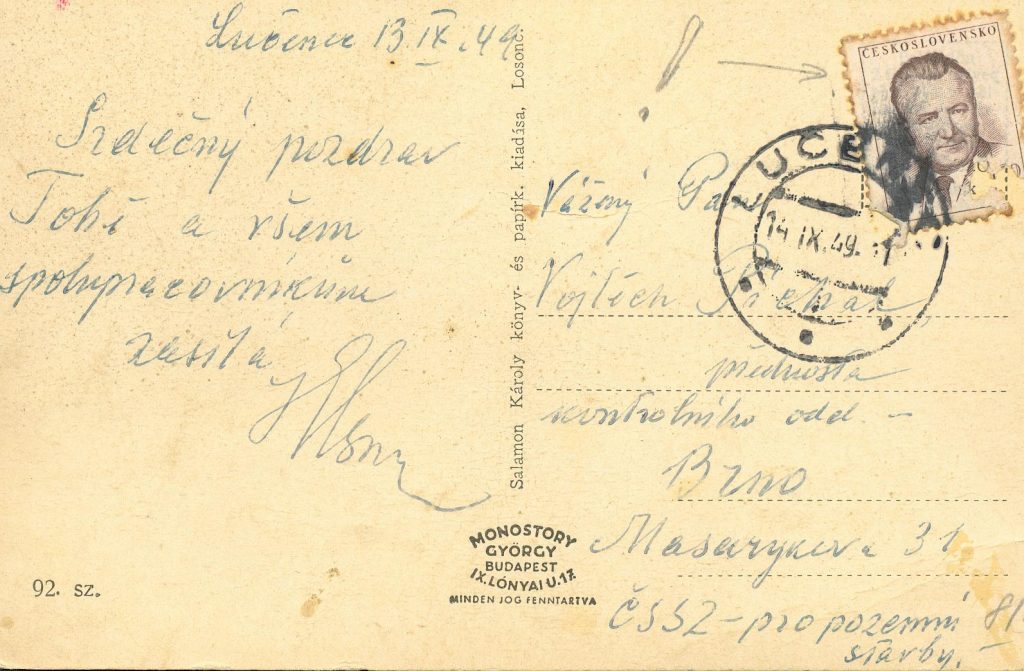 Lučenec 13.IX.49
Srdečný pozdrav
Tobě a všem
spolupracovníkům
zasílá
92. sz.
Salamon Károly könyv- és papírk. kiadása, Losonc.
MONOSTORY
GYÖRGY
BUDAPEST
IX. LÓNYAI U. 17
MINDEN JOG FENNTARTVA
ČESKOSLOVENSKO
14 IX.49.
Vážený Pan
Vojtěch
přednosta
kontrolního odd. —
Brno
Masarykova 31
ČSSZ - pro pozemní
stavby.